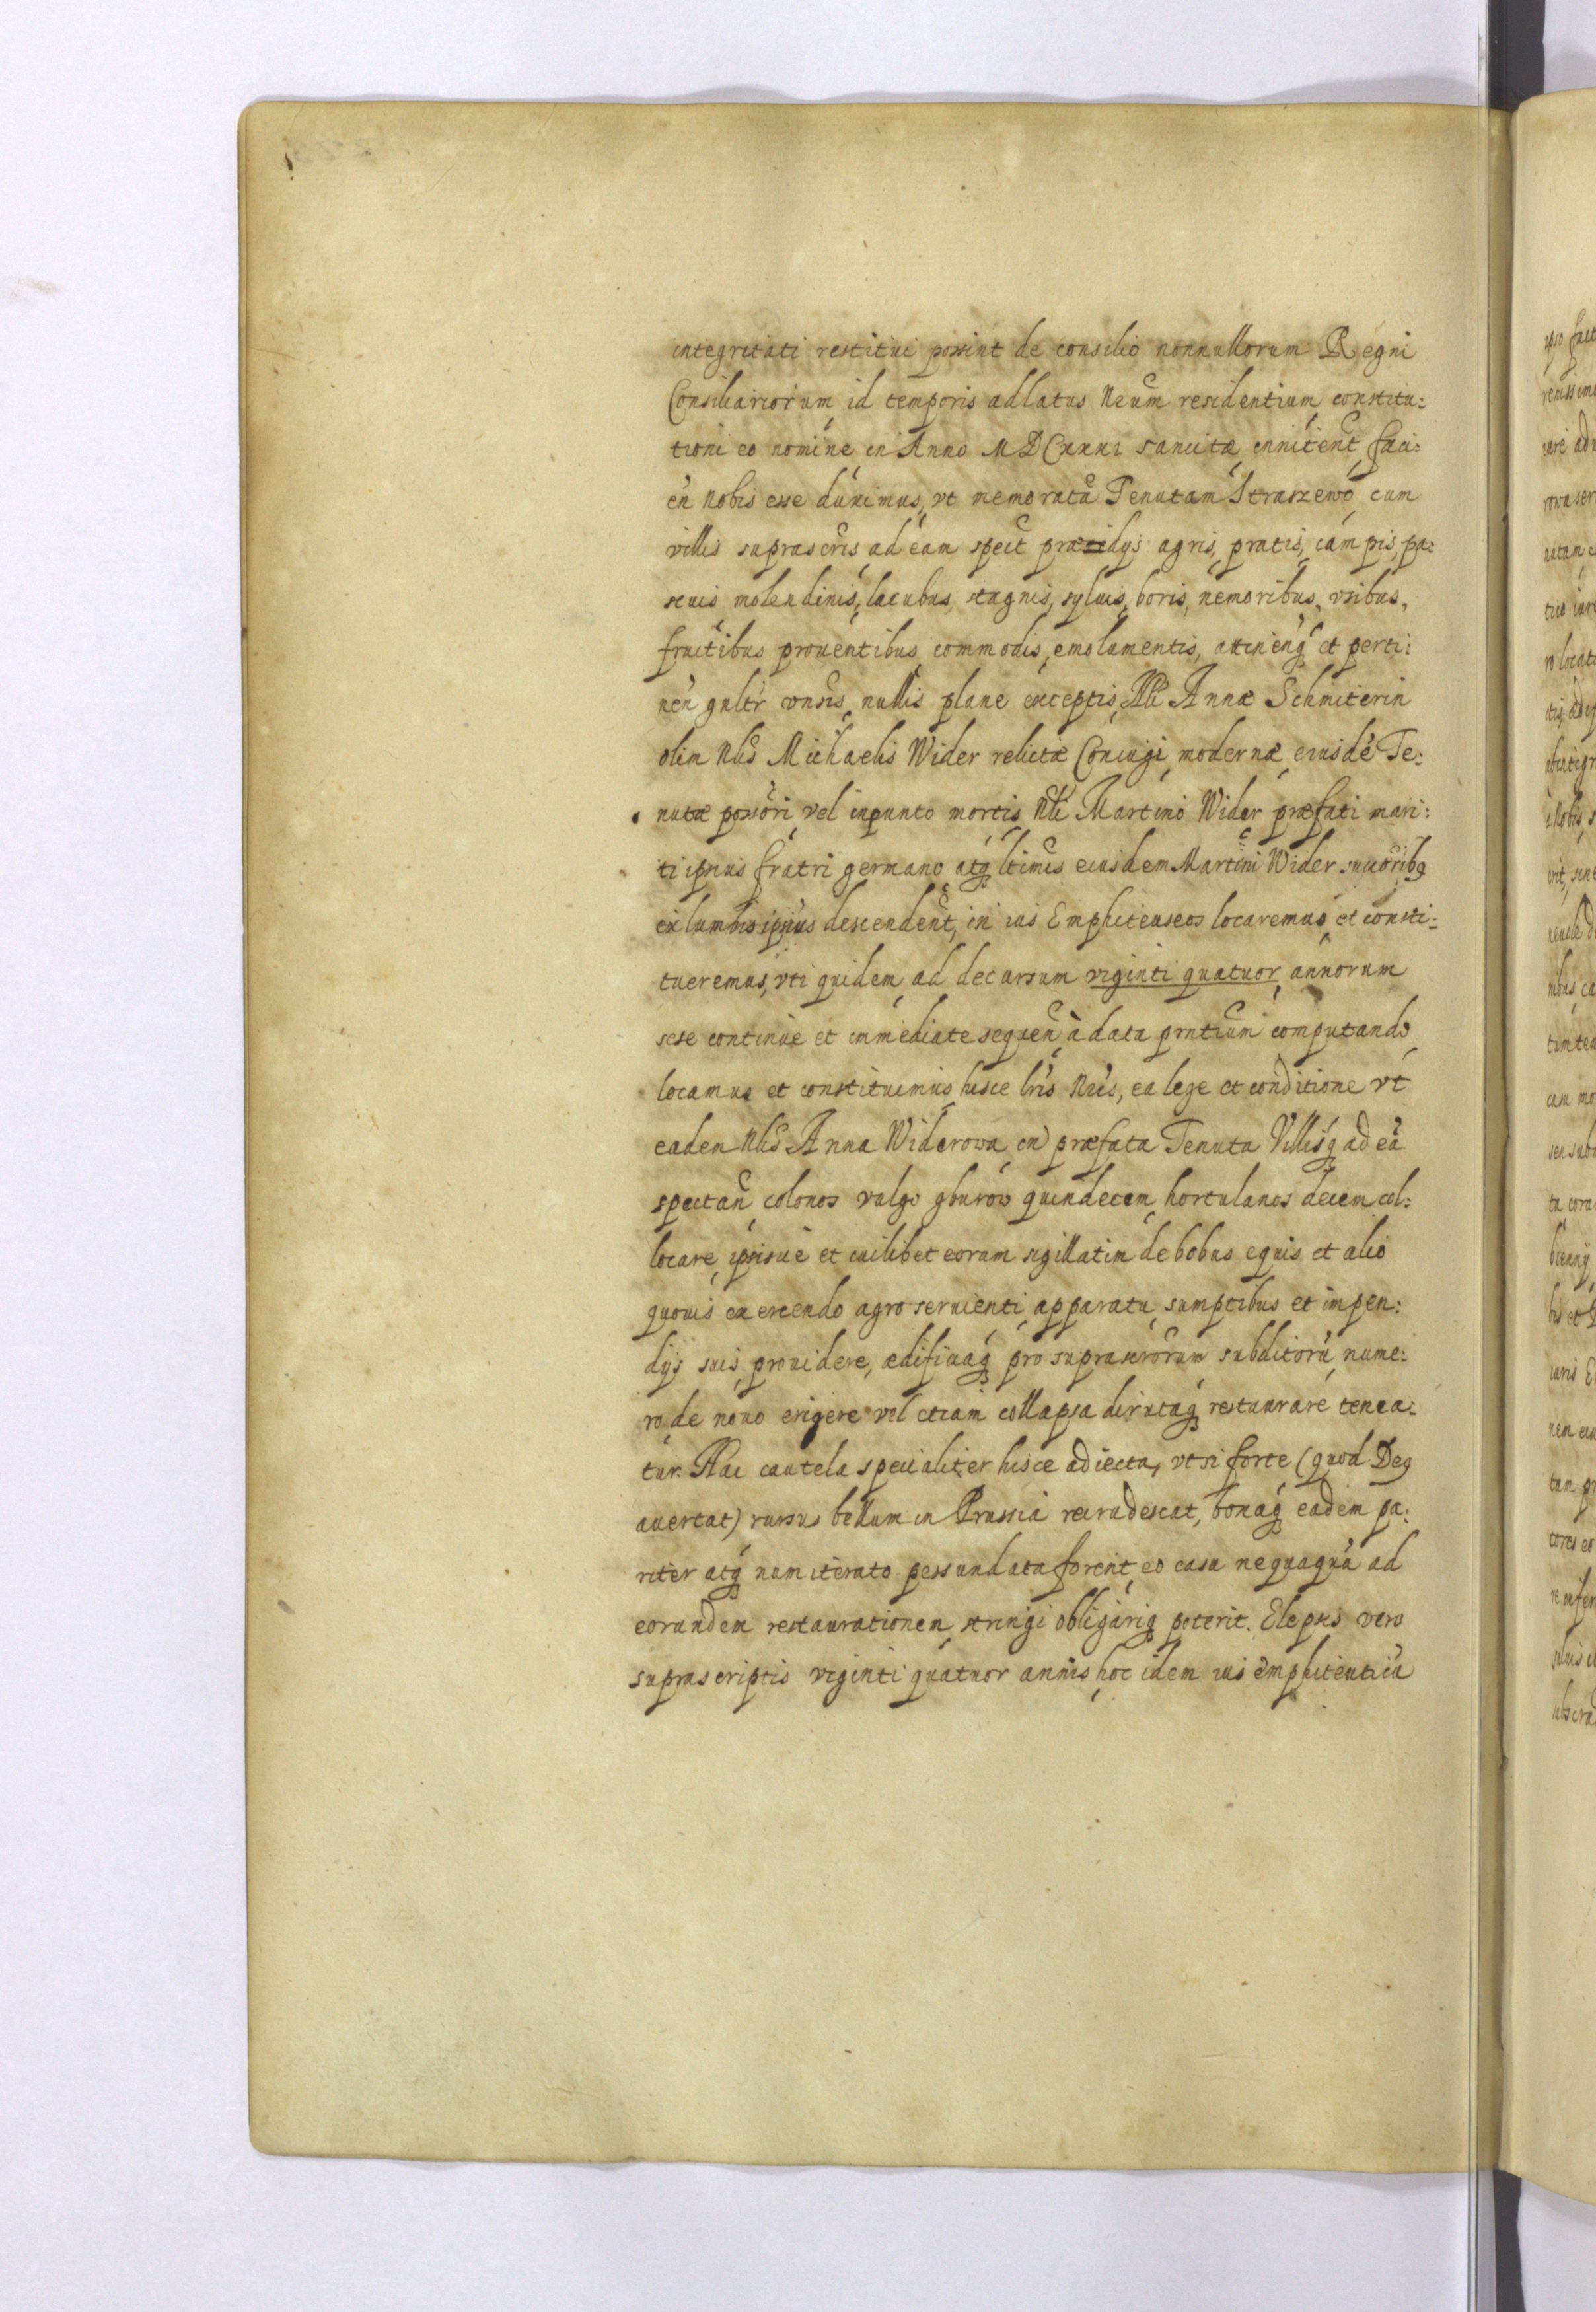 integritati restitui possint de consilio nonnullorum Regni
Consiliariorum id temporis ad latus Nrum residentium constitu:
tioni eo nomine in Anno MDCXXXI sancitæ innitent faci:
en Nobis esse duximus, vt memoratã Tenutam Straszewo cum
villis suprascris ad eam spect prædijs agris, pratis, campis, pa:
scuis molendinis, lacubus stagnis, syluis, boris, nemoribus, vsibus,
fructibus prouentibus commodis, emolumentis, attinenq et perti:
nen gnlr vnsis nullis plane exceptis Nli Annæ Schmiterin
olim Nlis Michaelis Wider relictæ Coniugi modernæ eiusdẽ Te:
nutæ possori vel in puncto mortis Nli Martino Wider præfati mari:
ti ipsius fratri germano atq ltimis eiusdem Martini Wider succoribg
ex lumbis ipsius descendent, in ius Emphiteuseos locaremus et consti:
tueremus, vti quidem ad decursum viginti quatuor annorum
sese continue et immediate sequen à data prntium computando
locamus et constituimus hisce lris Nris, ea lege et conditione vt
eadem Nlis Anna Widerowa in præfata Tenuta Villisq ad eã
spectan colonos vulgo gburow quindecem hortulanos decem col:
locare, ipsisue et cuilibet eorum sigillatim de bobus equis et alio
quouis exercendo agro seruienti apparatu sumptibus et impen:
dijs suis prouidere, ædificiaq pro suprascrorum subditorũ nume:
ro de nouo erigere vel etiam collapsa dirutaq restaurare tenea:
tur. Hac cautela specialiter hisce adiecta, vt si forte (quod Deg
auertat) rursus bellum in Prussia recrudescat, bonaq eadem pa:
riter atq nunc iterato pessundata forent, eo casu nequaquã ad
eorundem restaurationem stringi obligariq poterit. Elapsis vero
suprascriptis viginti quatuor annis hoc idem ius emphiteuticũ